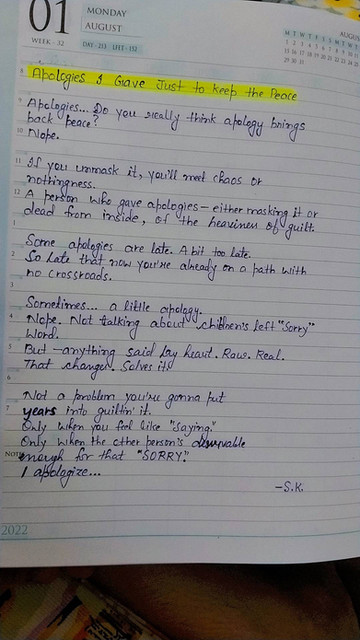 01
MONDAY
AUGUST
WEEK - 32
DAY - 213 LEFT - 152
AUGUS
M T W T F S M T W T
8 Apologies I Gave Just to keep the Peace
9 Apologies... Do you really think apology brings
back peace?
10 Nope.
11 If you unmask it, you'll meet chaos or
nothingness.
12 A person who gave apologies – either masking it or
dead from inside, of the heaviness of guilt.
1
Some apologies are late. A bit too late.
2 So late that now you're already on a path with
no crossroads.
3
Sometimes... a little apology.
4 Nope. Not talking about children's left "Sorry"
Word.
5 But – anything said by heart. Raw. Real.
That changes. Solves it.
6
Not a problem you're gonna put
7 years into guiltin' it.
Only when you feel like "Saying."
Only when the other person's deservable
NOTE enough for that "SORRY."
I apologize...
-S.K.
2022